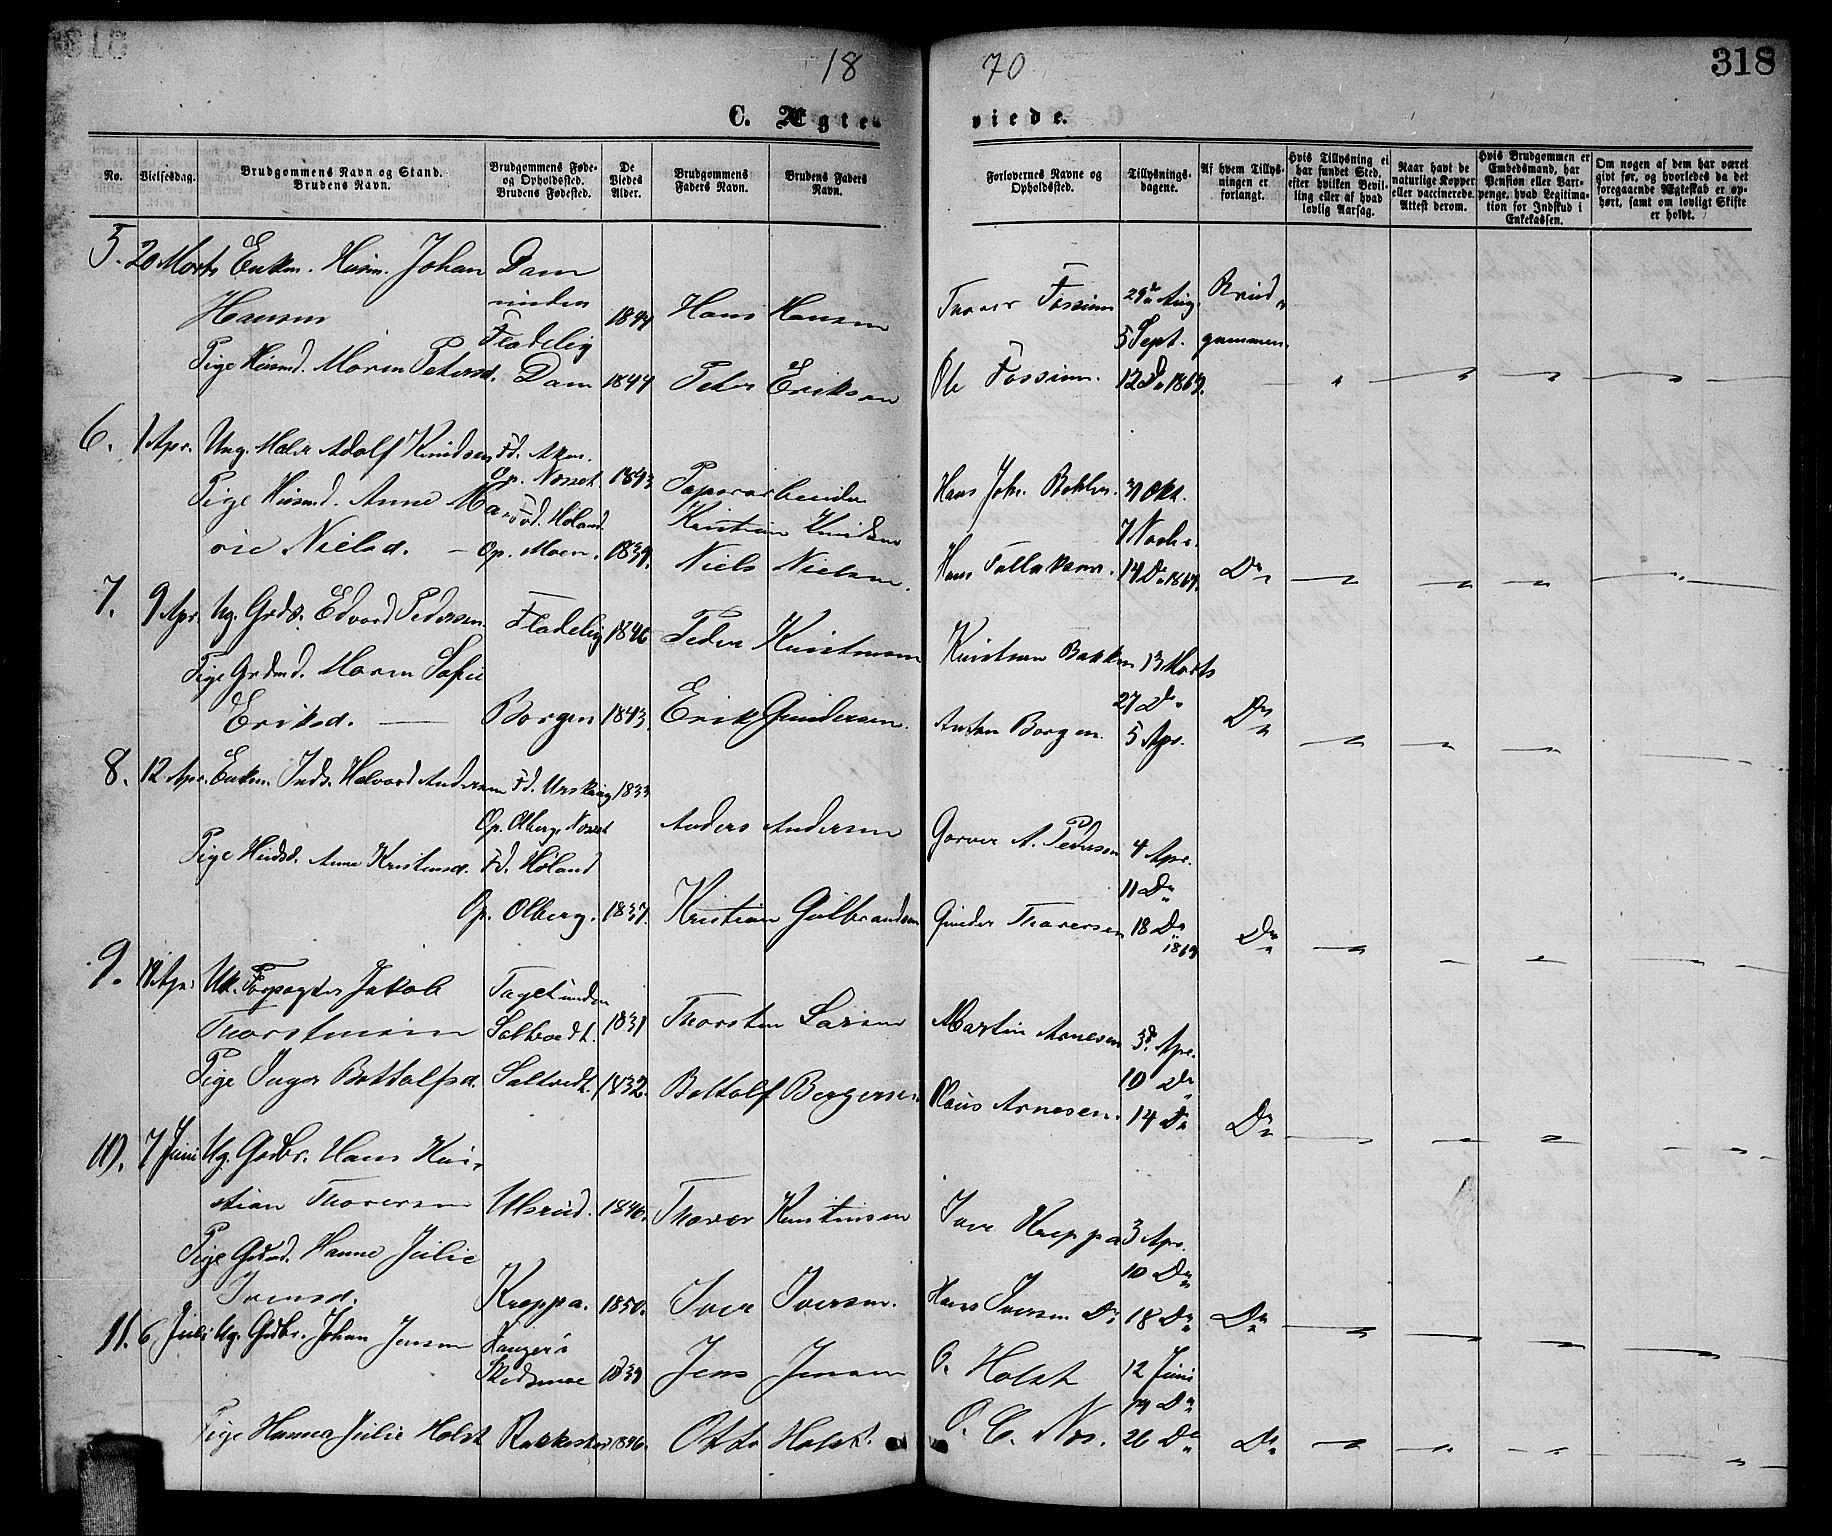 18 70
318
C. Ægteviede.
No.
Vielsesdag.
Brudgommens Navn og Stand.
Brudens Navn.
Brudgommens Føde-
og Opholdsted.
Brudens Fødested.
De
Viedes
Alder.
Brudgommens
Faders Navn.
Brudens Faders
Navn.
Forlovernes Navne og
Opholdsted.
Tillysnings-
dagene.
Af hvem Tillys-
ningen er
forlangt.
Hvis Tillysning ei
har fundet Sted,
efter hvilken Bevil-
ling eller af hvad
lovlig Aarsag.
Naar havt de
naturlige Kopper
eller vaccinerede.
Attest derom.
Hvis Brudgommen er
Embedsmand, har
Pension eller Vart-
penge, hvad Legitima-
tion for Indskud i
Enkekassen.
Om nogen af dem har været
givt før, og hvorledes da det
foregaaende Ægteskab er op-
hørt, samt om lovligt Skifte
er holdt.
5. 20 Marts Enkm. Husm. Johan Dam
Hansen unden Fladeby 1844 Hans Hansen Thorer Fossum 29de Aug. Brud-
5 Sept. gommen.
Pige Husmd. Maren Petersd. Dam 1844 Peter Eriksen Ole Fossum. 12 Do 1869.
6. 1 Apr. Ung. Maler Adolf Knudsen Fd. Aker.
Op. Nosset. 1843 Papirarbeider Hans Joh. 31 Okt.
Pige Husmd. Anne Ma- Fd. Høland Kristian Knudsen 7 Novbr.
rie Nielsd. — Op. Moen. 1839. Niels Nielsen. Hans 14 Do 1869. Do
7. 9 Apr. Ug. Grds. Edvard Pedersen Fladeby 1846 Peder Kristensen Kristian Bakken 13 Marts
Pige Grdmd. Maren Sofie 27 Do
Eriksd. — Borgen 1843. Erik Gundersen. Anton Borgen. 5 Apr. Do
8. 12 Apr. Enkm. Inds. Halvord Andersen Fd. Urskoug 1833
Op. Olberg Nosset Anders Andersen A. Pedersen 4 Apr.
Pige Husd. Anne Kristensd. Fd. Høland 11 Do
Op. Olberg. 1837. Kristian Gulbrandsen Gunder Thoresen 18 Do 1869 Do
9. Apr. Forpagter Jakob
Thorstensen 1831 Thorsten Larsen Martin Arnesen 3die Apr.
10 Do
Pige Inger Bottolfsd. Saltvedt. 1832. Bottolf Bergersen Klaus Arnesen. 14 Do Do
10. 7 Juni Ug. Grdbr. Hans Kri-
stian Thoresen Ulsrud. 1846. Thorer Kristensen Iver Kroppa 3 Apr.
Pige Grdmd. Hanne Julie 10 Do
Iversd. Kroppa. 1850. Iver Iversen. Hans Iversen Do 18 Do Do
11. 6 Juli Ug. Grdbr. Johan Jensen
Skedsmoe 1839 Jens Jensen O. Holst 12 Juni
19 Do
Pige Hanna Julie Holst Rakkestad 1846. Otto Holst. O. C. 26 Do Do